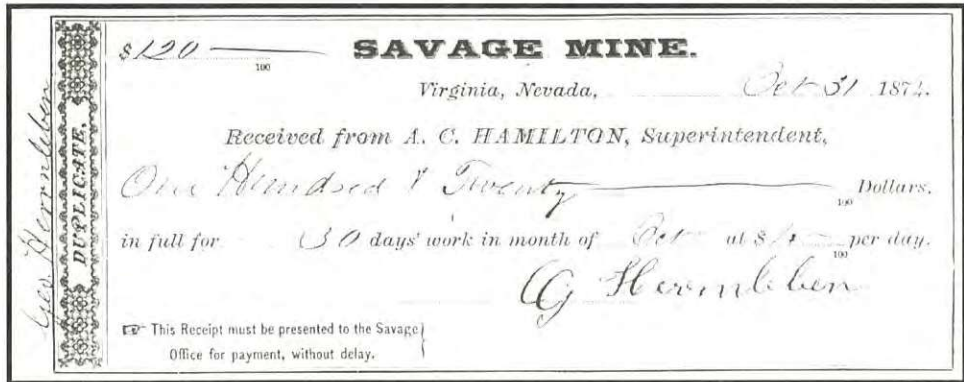 Geo. Herrnleben
DUPLICATE.
$120 —
100
SAVAGE MINE.
Virginia, Nevada, Oct 31 1874.
Received from A. C. HAMILTON, Superintendent,
One Hundred & Twenty — Dollars.
100
in full for 30 days' work in month of Oct at $4 — per day.
100
G Hermleben
☞ This Receipt must be presented to the Savage
Office for payment, without delay.